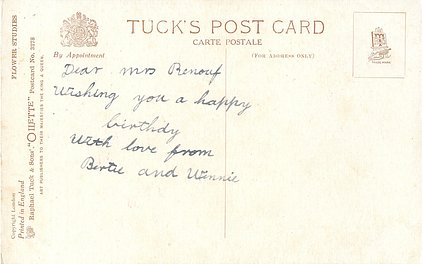 TUCK'S POST CARD
CARTE POSTALE
By Appointment
(FOR ADDRESS ONLY)
Dear Mrs Renouf
Wishing you a happy
birthdy
With love from
Bertie and Winnie
FLOWER STUDIES
Raphael Tuck & Sons' "OILETTE" Postcard No. 3278
ART PUBLISHERS TO THEIR MAJESTIES THE KING & QUEEN.
Copyright London
Printed in England
TRADE MARK